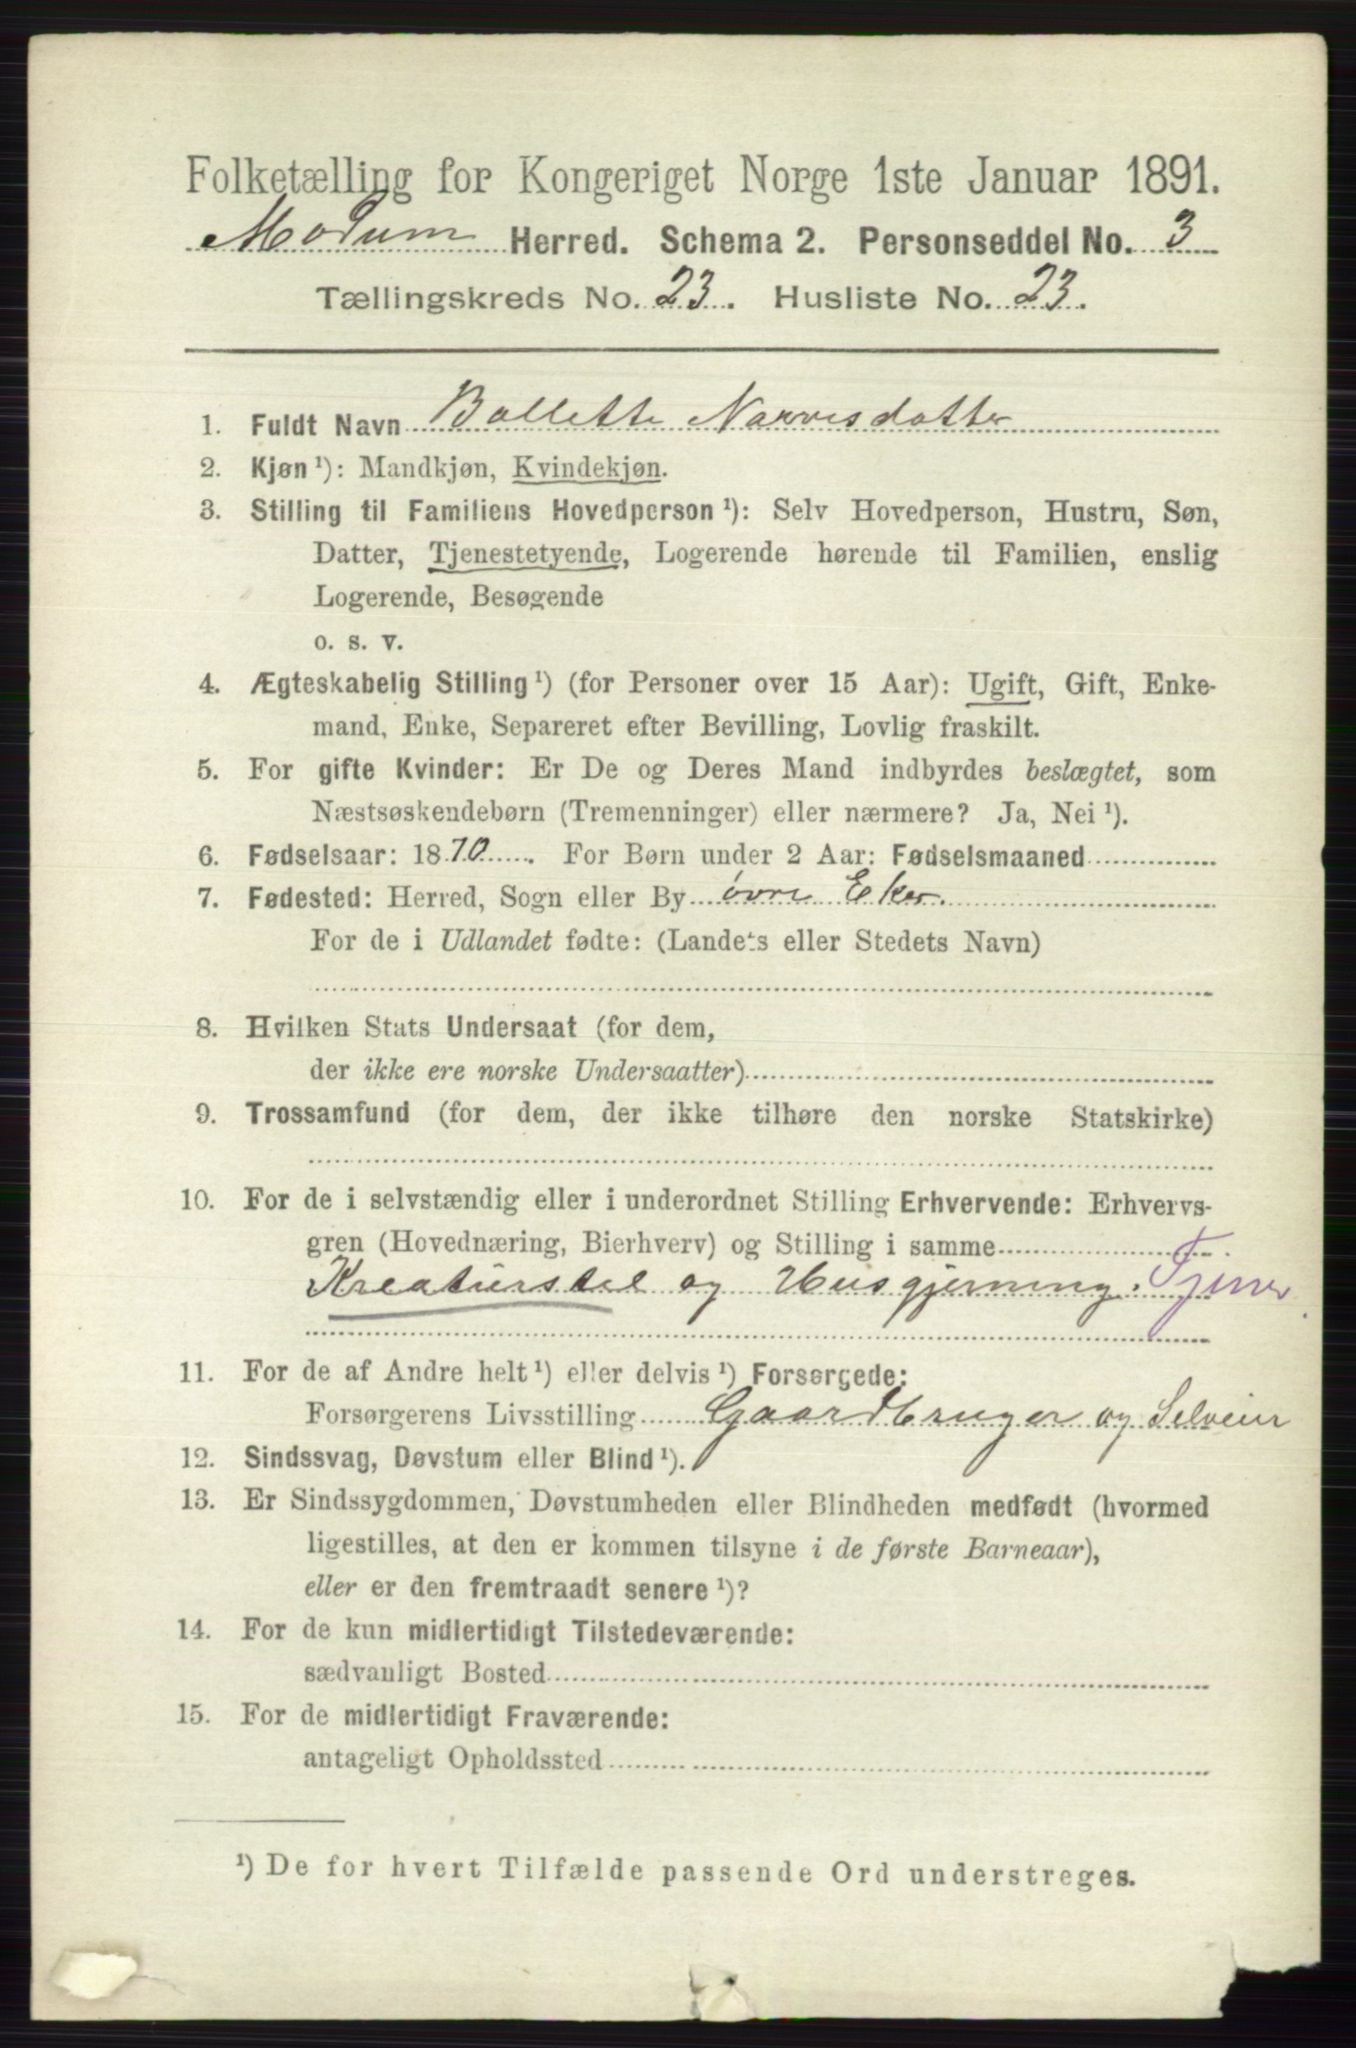 Folketælling for Kongeriget Norge 1ste Januar 1891.
Modum Herred. Schema 2. Personseddel No. 3
Tællingskreds No. 23. Husliste No. 23.
1. Fuldt Navn Bollette Narvesdatter
2. Kjøn ¹): Mandkjøn, Kvindekjøn.
3. Stilling til Familiens Hovedperson ¹): Selv Hovedperson, Hustru, Søn,
Datter, Tjenestetyende, Logerende hørende til Familien, enslig
Logerende, Besøgende
o. s. v.
4. Ægteskabelig Stilling ¹) (for Personer over 15 Aar): Ugift, Gift, Enke-
mand, Enke, Separeret efter Bevilling, Lovlig fraskilt.
5. For gifte Kvinder: Er De og Deres Mand indbyrdes beslægtet, som
Næstsøskendebørn (Tremenninger) eller nærmere? Ja, Nei ¹).
6. Fødselsaar: 1870. For Børn under 2 Aar: Fødselsmaaned
7. Fødested: Herred, Sogn eller By øvre Eker.
For de i Udlandet fødte: (Landets eller Stedets Navn)
8. Hvilken Stats Undersaat (for dem,
der ikke ere norske Undersaatter)
9. Trossamfund (for dem, der ikke tilhøre den norske Statskirke)
10. For de i selvstændig eller i underordnet Stilling Erhvervende: Erhvervs-
gren (Hovednæring, Bierhverv) og Stilling i samme
Kreaturstel og Husgjerning. Tjener
11. For de af Andre helt ¹) eller delvis ¹) Forsørgede:
Forsørgerens Livsstilling Gaardbruger og Selveier
12. Sindssvag, Døvstum eller Blind ¹).
13. Er Sindssygdommen, Døvstumheden eller Blindheden medfødt (hvormed
ligestilles, at den er kommen tilsyne i de første Barneaar),
eller er den fremtraadt senere ¹)?
14. For de kun midlertidigt Tilstedeværende:
sædvanligt Bosted
15. For de midlertidigt Fraværende:
antageligt Opholdssted
¹) De for hvert Tilfælde passende Ord understreges.